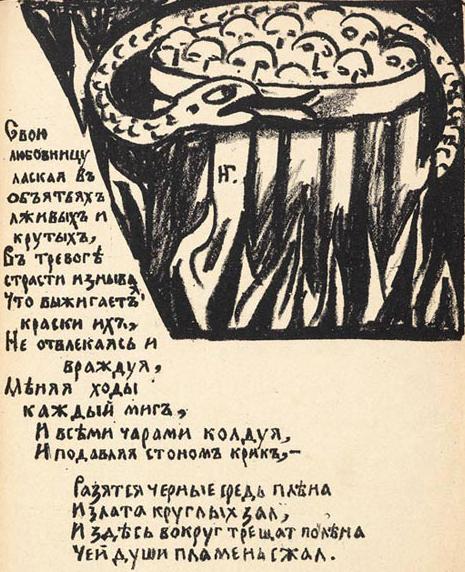 НГ.
Свою
любовницу
лаская въ
объятьяхъ
лживыхъ и
крутыхъ,
Въ тревогѣ
страсти изнывая
Что выжигаетъ
краски ихъ,
Не отвлекаясь и
враждуя,
Мѣняя ходы
каждый мигъ,
И всѣми чарами колдуя,
И подавляя стономъ крикъ,–
Разятся черные средь плѣна
И злата круглых зал,
И здѣсь вокруг трещат полѣна
Чей души пламень сжал.